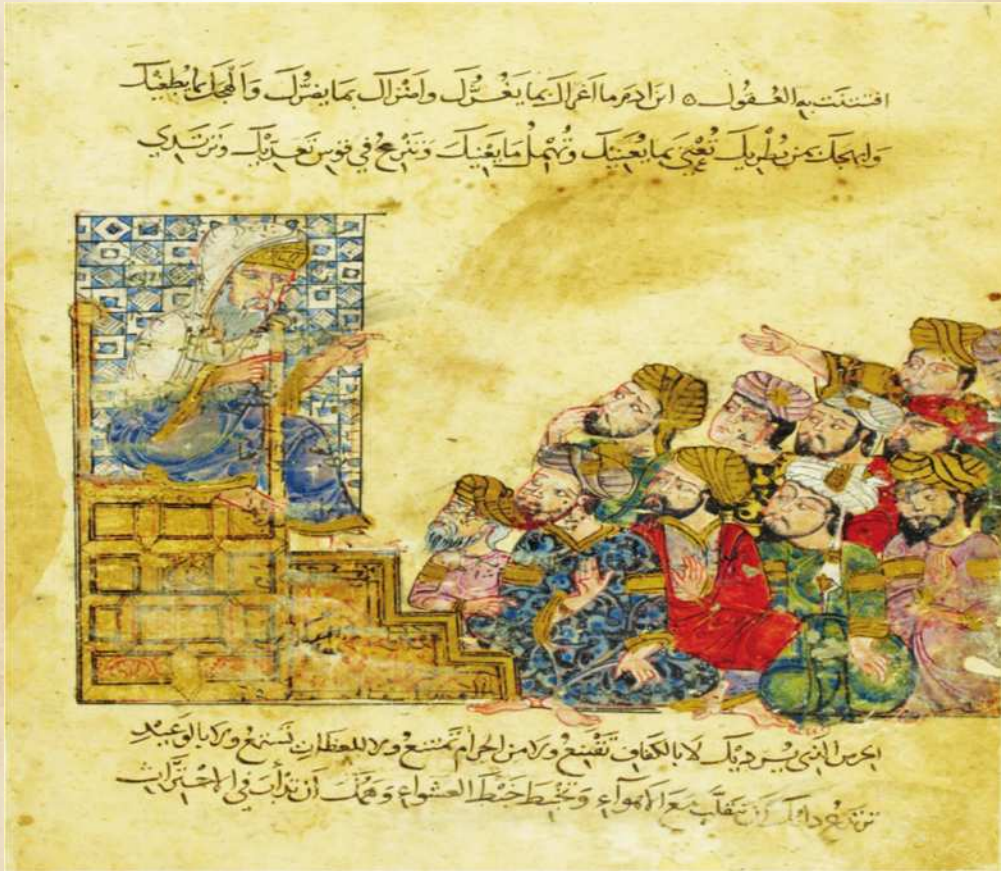 افتتنت به العقول ۞ ابن ادم ما اغراك بما يَغُرُّكَ واضراك بما يضرُّك وَالهجك بما يُطغيك
وَابهجك بمن يُطْرِيك تُعْنَى بما يُعَنِّيك وتُهْمِلُ مَا يَعْنِيكَ وَتَنْزِعُ في قوس تَعَدِّيْكَ وَتَرْتَدِي
الحرص الذي يُرْدِيك لا بالكفاف تقتنع ولا من الحرام تمتنع ولا للعظات تستمع ولا بالوعيد
ترتدع دابك أن تتقلب مع الاهوآءِ وتخبط خبط العشواءِ وهمّك أن تدأب في الاحتراث